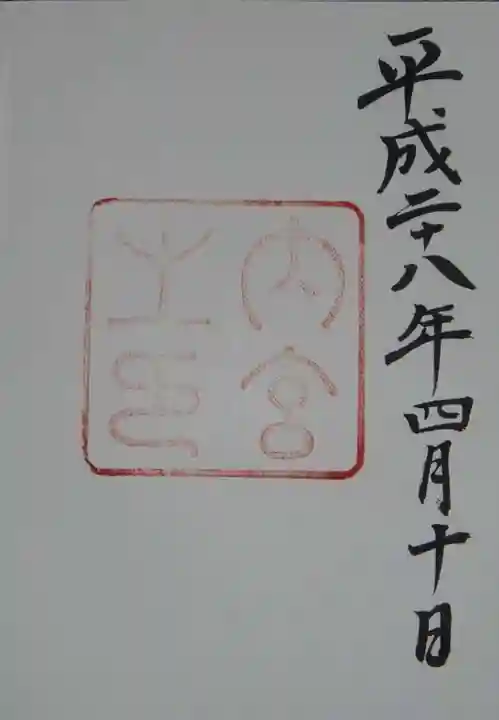 平成二十八年四月十日
内宮
之印